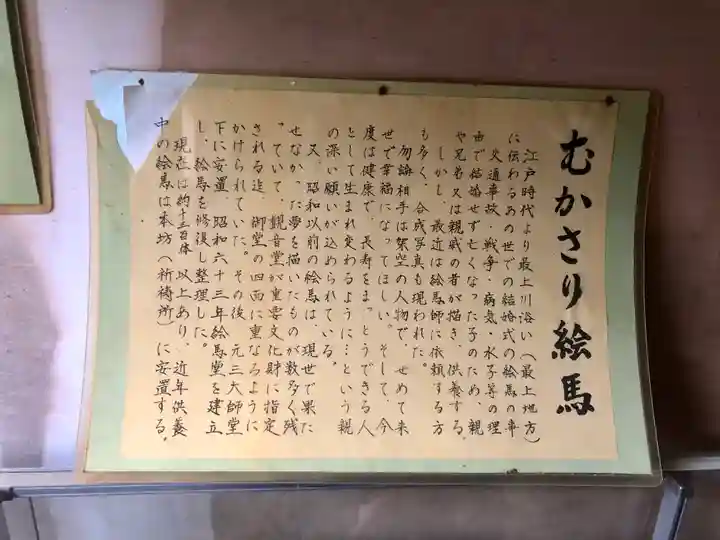 むかさり絵馬
江戸時代より最上川沿い(最上地方)
に伝わるあの世での結婚式の絵馬の事
交通事故・戦争・病気・水子等の理
由で結婚せず亡くなった子のため、親
や兄弟又は親戚の者が描き、供養する。
しかし、最近は絵馬師に依頼する方
も多く、合成写真も現われた。
勿論相手は架空の人物で、せめて来
世で幸福になってほしい。そして、今
度は健康で、長寿をまっとうできる人
として生まれ変わるように…という親
の深い願いが込められている。
又、昭和以前の絵馬は、現世で果た
せなかった夢を描いたものが数多く残
っていて、観音堂が重要文化財に指定
される迄、御堂の四面に重なるように
かけられていた。その後、元三大師堂
下に安置、昭和六十三年絵馬堂を建立
し、絵馬を修復し整理した。
現在は約十三百体以上あり、近年供養
中の絵馬は本坊(祈祷所)に安置する。